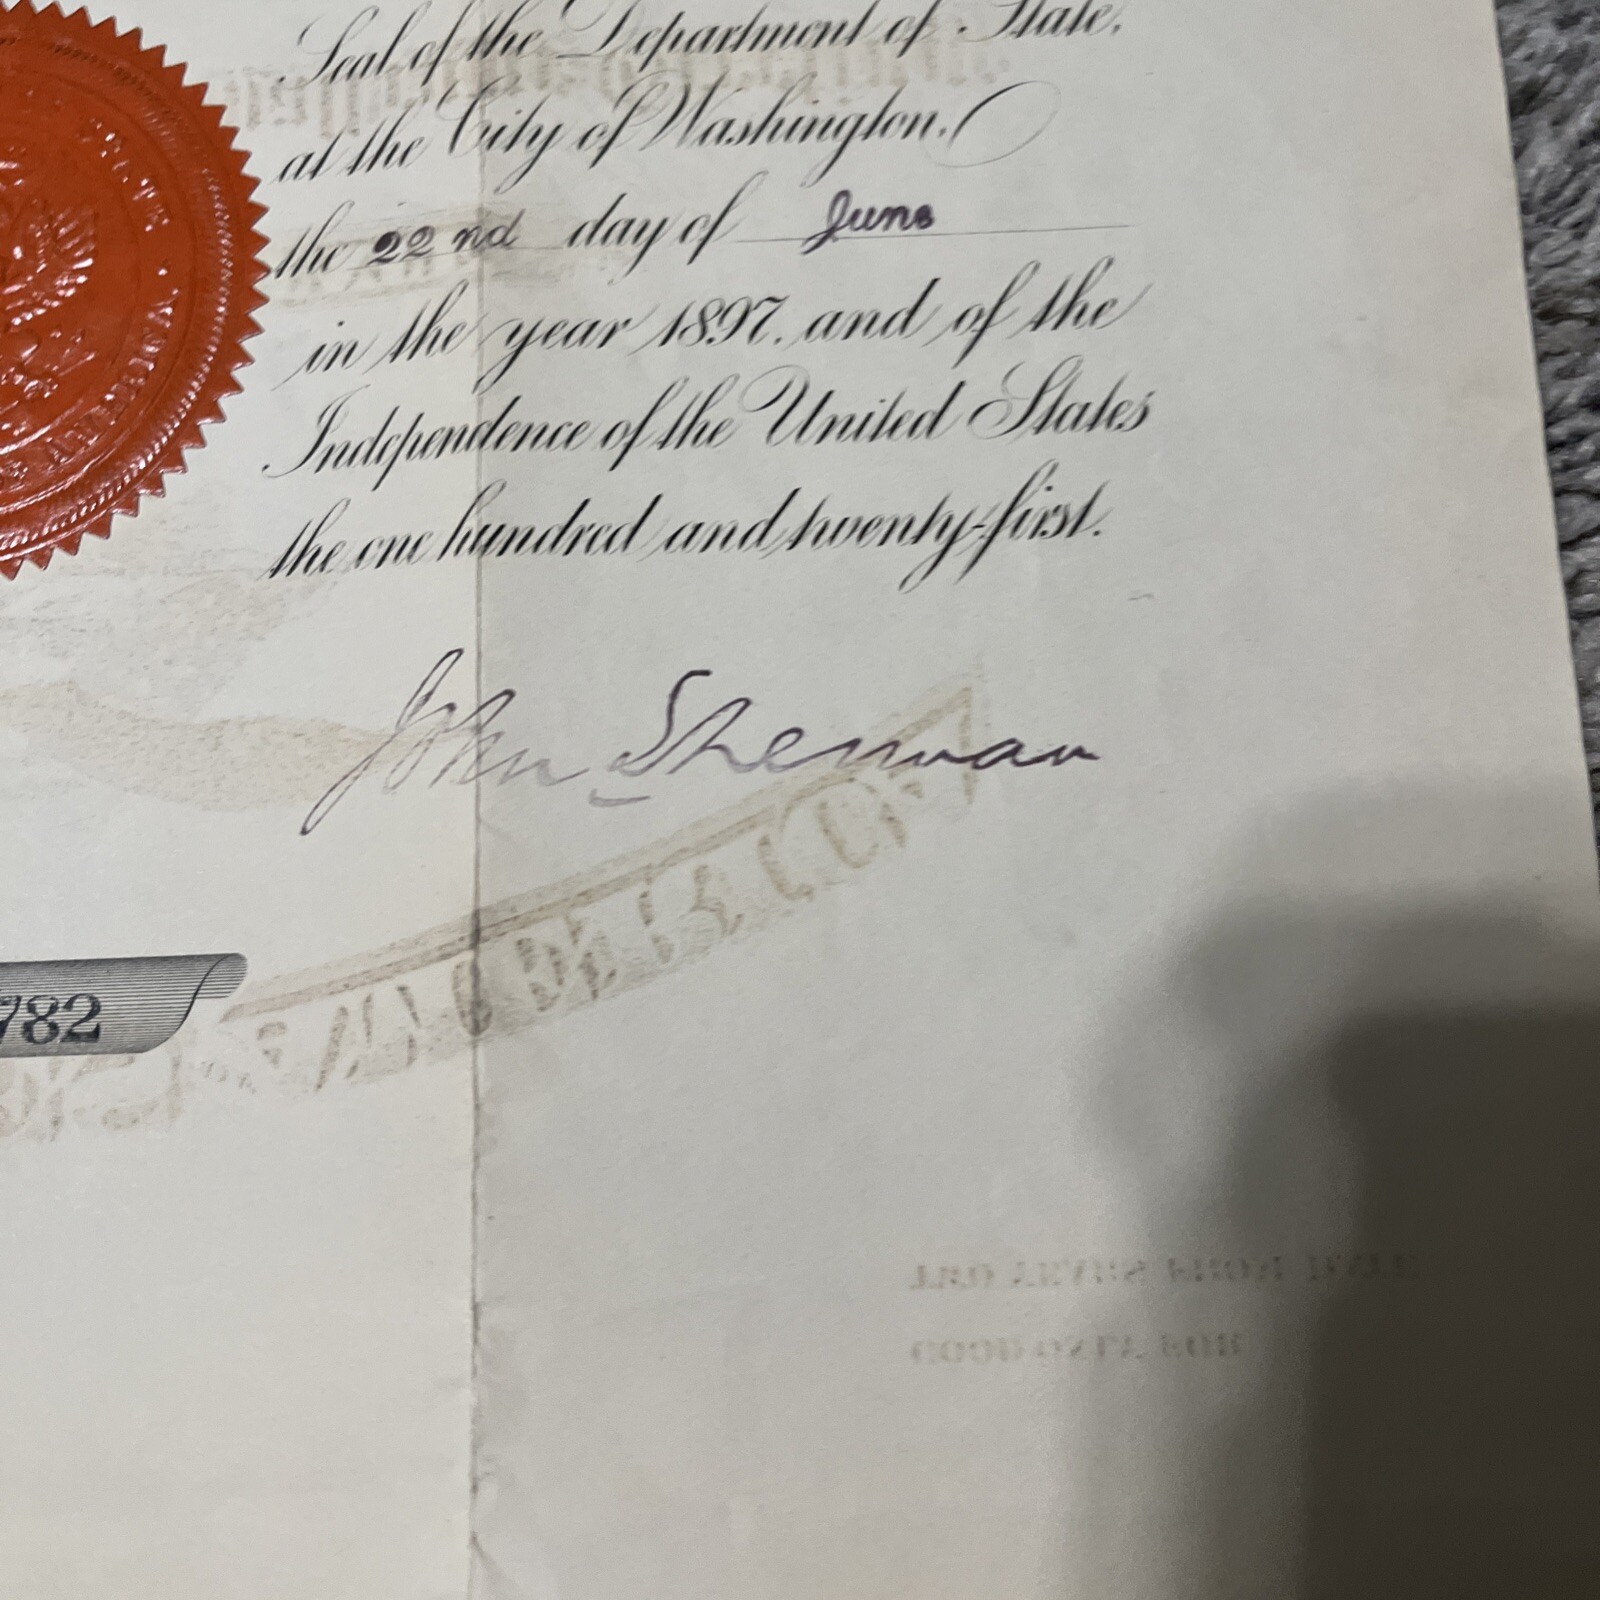 Seal of the Department of State,
at the City of Washington,
the 22nd day of June
in the year 1897, and of the
Independence of the United States
the one hundred and twenty-first.
John Sherman
782
AMERICA
GOOD ONLY FOR
TWO YEARS FROM DATE